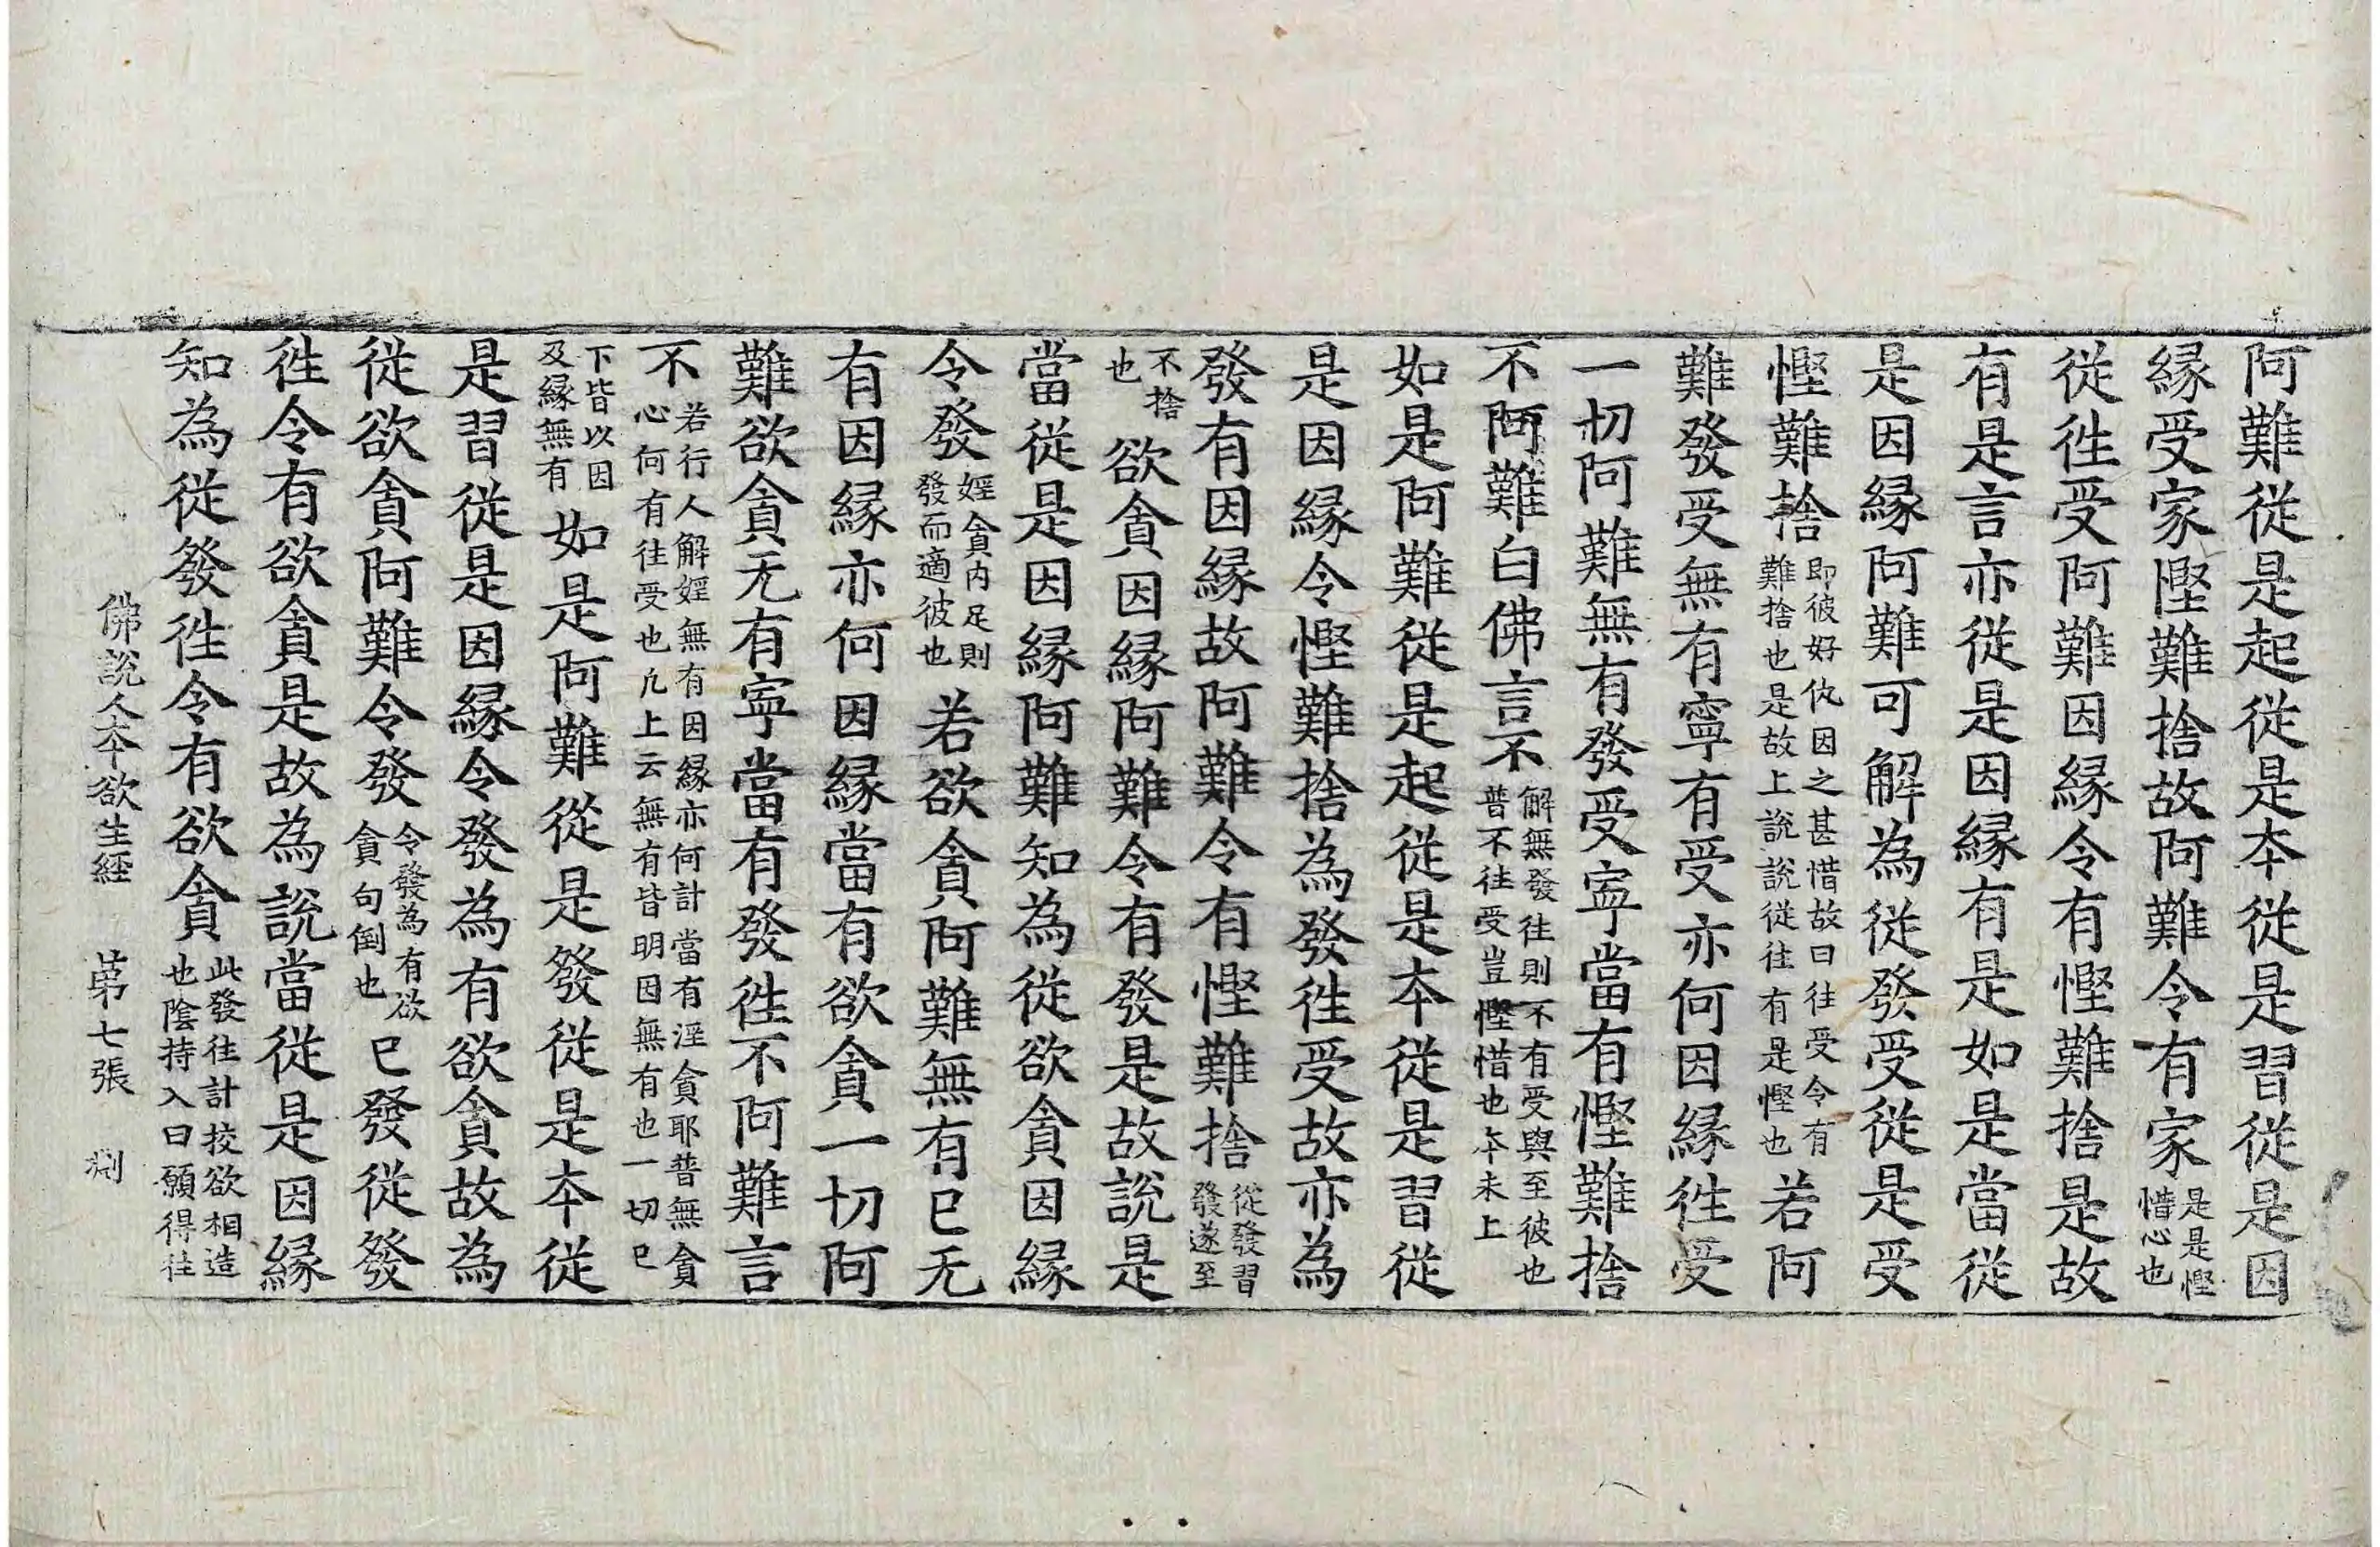 阿難從是起從是本從是習從是因
縁受家慳難捨故阿難令有家是是慳惜心也
從徃受阿難因縁令有慳難捨是故
有是言亦從是因縁有是如是當從
是因縁阿難可解為從發受從是受
慳難捨即彼好仇因之甚惜故曰往受令有難捨也是故上說說從往有是慳也若阿
難發受無有寧有受亦何因縁徃受
一切阿難無有發受寧當有慳難捨
不阿難白佛言不解無發往則不有受與至彼也普不往受豈慳惜也本未上
如是阿難從是起從是本從是習從
是因縁令慳難捨為發徃受故亦為
發有因縁故阿難令有慳難捨從發習發遂至
不捨也欲貪因縁阿難令有發是故說是
當從是因縁阿難知為從欲貪因縁
令發婬貪内足則發而適彼也若欲貪阿難無有已无
有因縁亦何因縁當有欲貪一切阿
難欲貪无有寧當有發徃不阿難言
不若行人解婬無有因縁亦何計當有淫貪耶普無貪心何有往受也凢上云無有皆明因無有也一切已
下皆以因及縁無有如是阿難從是發從是本從
是習從是因縁令發為有欲貪故為
從欲貪阿難令發令發為有欲貪句倒也已發從發
徃令有欲貪是故為說當從是因縁
知為從發徃令有欲貪此發往計挍欲相造也陰持入曰願得往
佛說人本欲生經　第七張